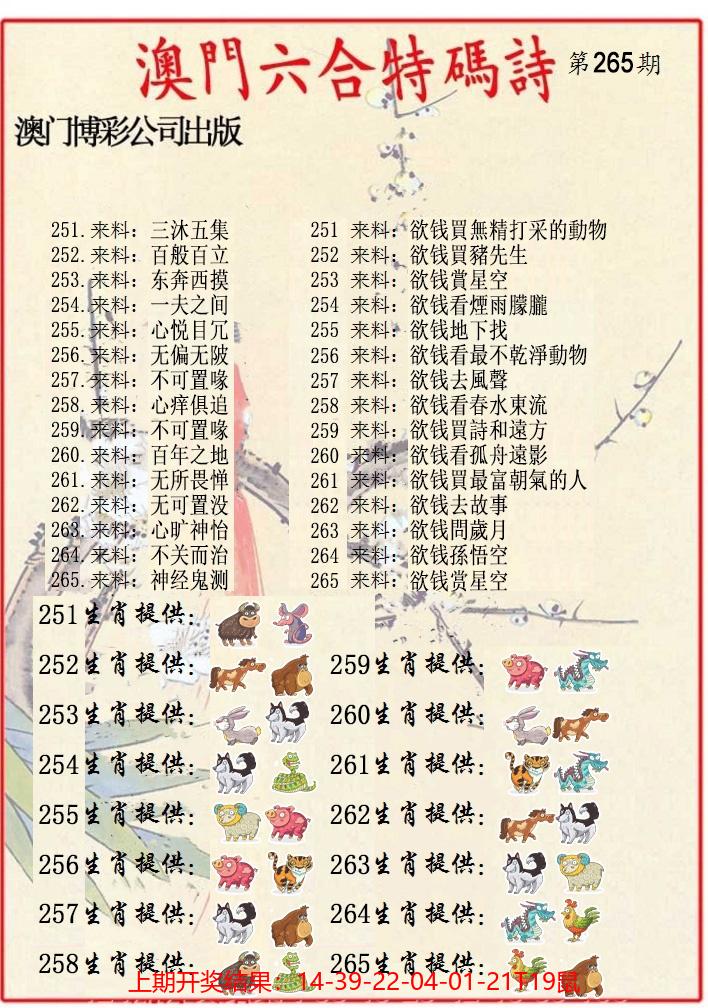 澳門六合特碼詩 第265期
澳门博彩公司出版
251.来料：三沐五集
252.来料：百般百立
253.来料：东奔西摸
254.来料：一夫之间
255.来料：心悦目冗
256.来料：无偏无陂
257.来料：不可置喙
258.来料：心痒俱追
259.来料：不可置喙
260.来料：百年之地
261.来料：无所畏惮
262.来料：无可置没
263.来料：心旷神怡
264.来料：不关而治
265.来料：神经鬼测
251 来料：欲钱買無精打采的動物
252 来料：欲钱買豬先生
253 来料：欲钱賞星空
254 来料：欲钱看煙雨朦朧
255 来料：欲钱地下找
256 来料：欲钱看最不乾淨動物
257 来料：欲钱去風聲
258 来料：欲钱看春水東流
259 来料：欲钱買詩和遠方
260 来料：欲钱看孤舟遠影
261 来料：欲钱買最富朝氣的人
262 来料：欲钱去故事
263 来料：欲钱問歲月
264 来料：欲钱孫悟空
265 来料：欲钱赏星空
251生肖提供：
252生肖提供：
253生肖提供：
254生肖提供：
255生肖提供：
256生肖提供：
257生肖提供：
258生肖提供：
259生肖提供：
260生肖提供：
261生肖提供：
262生肖提供：
263生肖提供：
264生肖提供：
265生肖提供：
上期开奖结果：14-39-22-04-01-21T19鼠